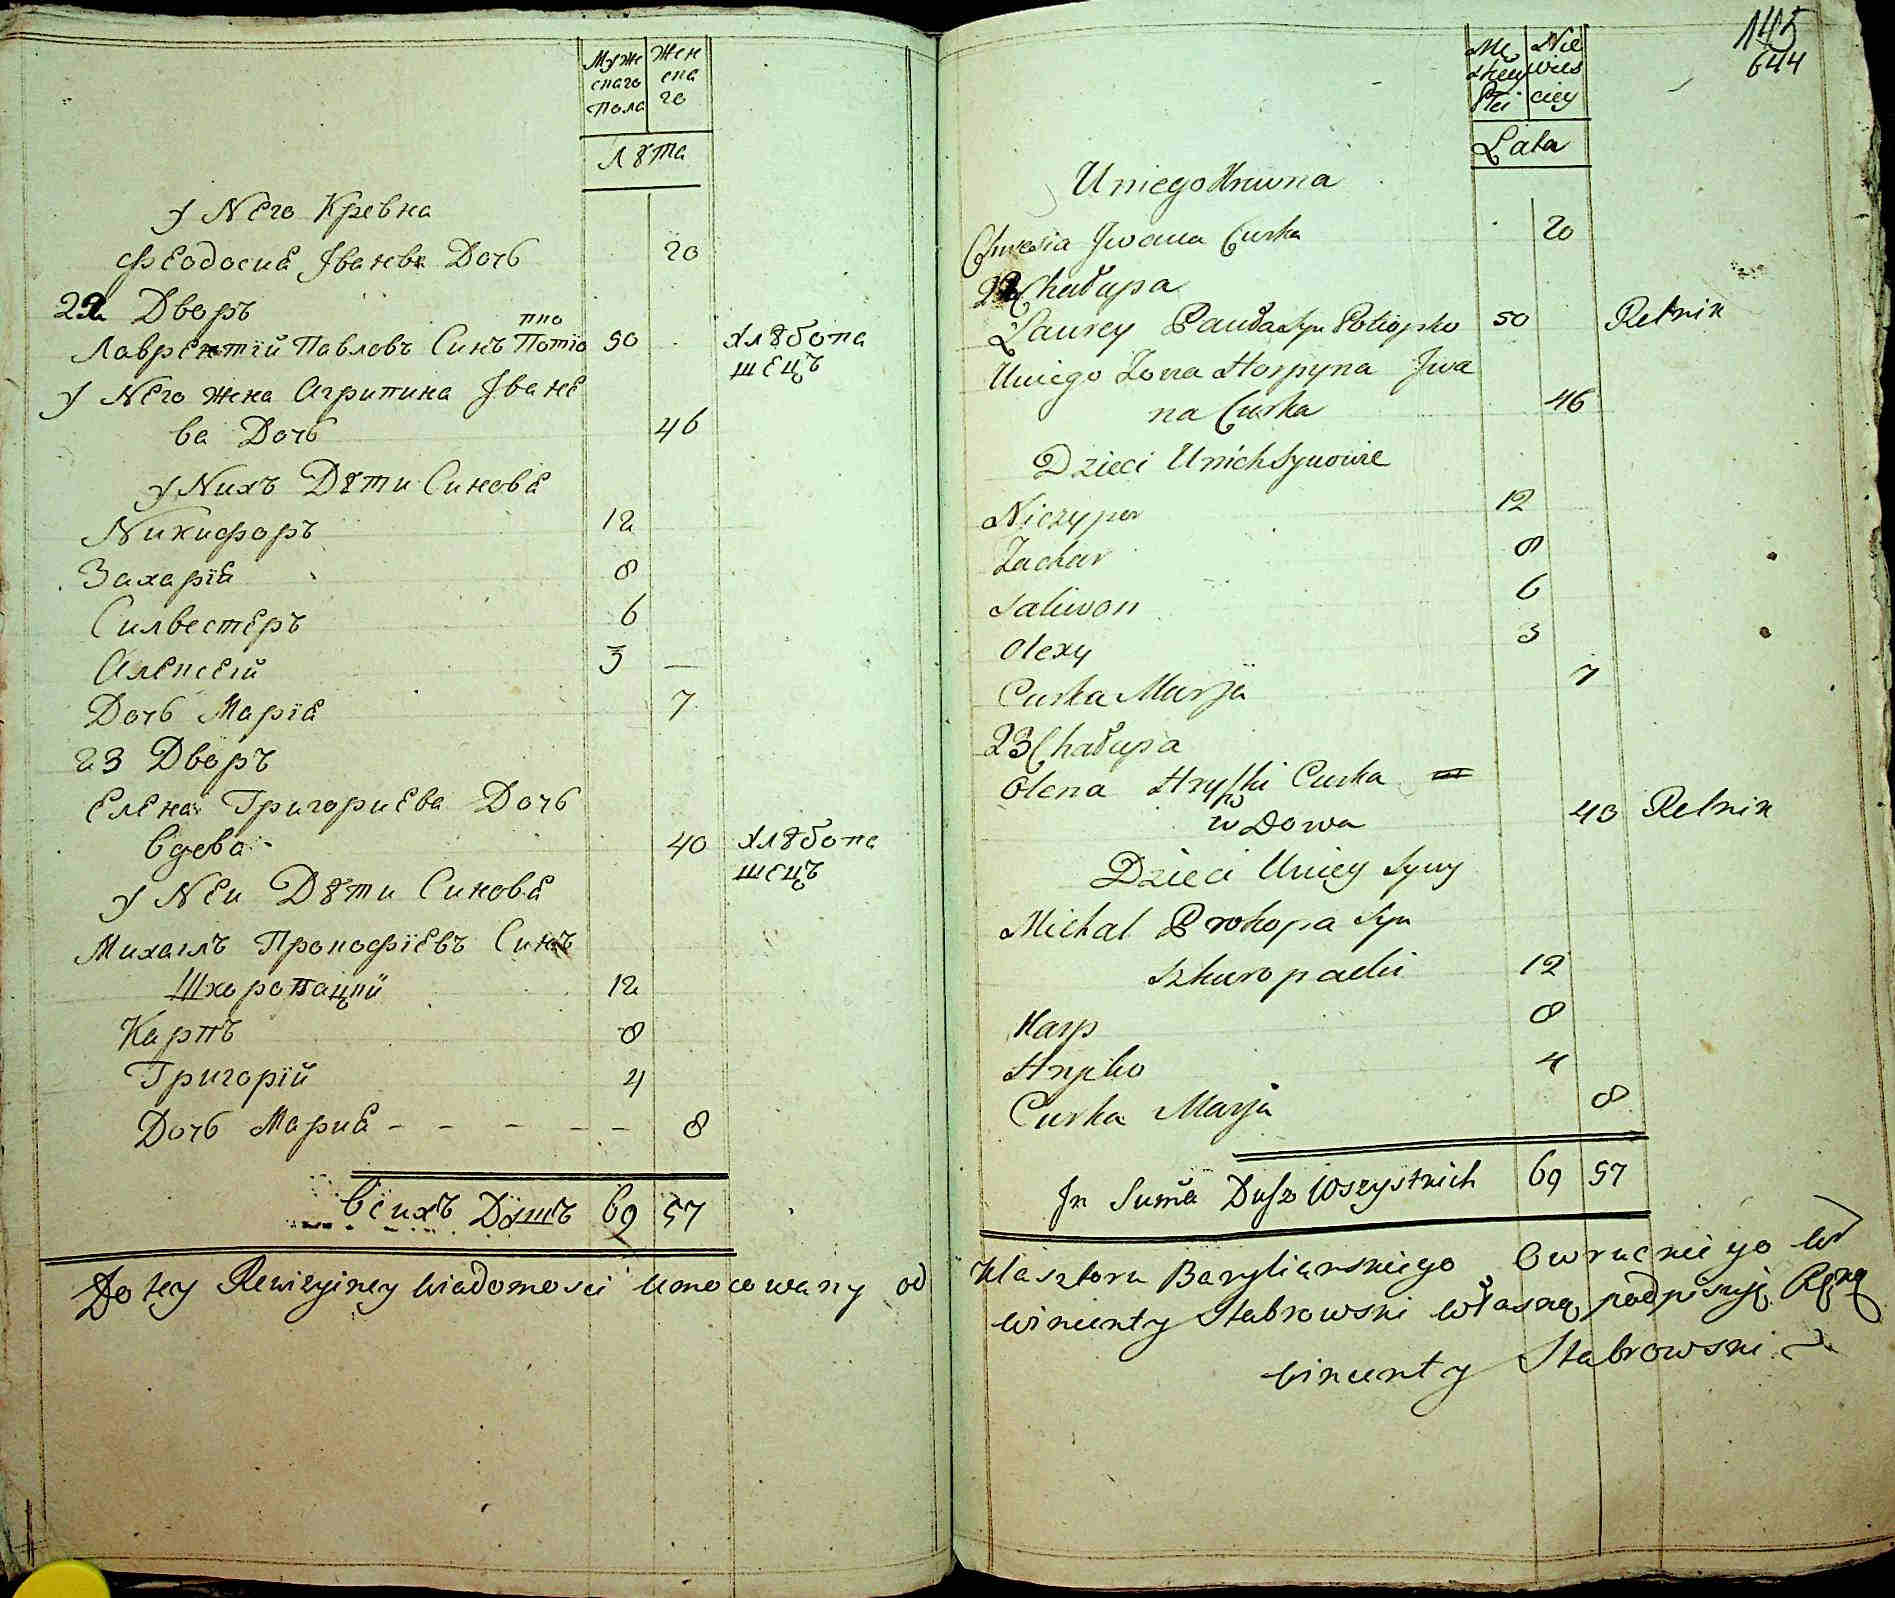 Муже Жен
скаго ска
Пола го
Лѣта
У Него Кревна
Феодосиа Іванова Дочь 20
22 Дворъ
Лаврентїй Павловъ Синъ Потїо 50 Хлѣбопа
пко
шецъ
У Него Жена Агрипина Іване
ва Дочь 46
У Нихъ Дѣти Синовѣ
Никифоръ 12
Захарїй 8
Силвестеръ 6
Алексей 3
Дочь Марїа 7
23 Дворъ
Елена Григориева Дочь
Вдова 40 Хлѣбопа
шецъ
У Неи Дѣти Синовѣ
Михаилъ Прокофїевъ Синъ
Шкоропацкїй 12
Карпъ 8
Григорїй 4
Дочь Мариа - - - - - 8
Всихъ Душъ 69 57
Do tey Rewizyiney wiadomosci umocowany od
145
644
Mę Nie
skiey wies
Płci ciey
Lata
U niego Krewna
Chwesia Jwana Curka 20
22 Chałupa
Laurey Pawła Syn Potiopko 50 Rolnik
U niego Zona Horpyna Jwa
na Curka 46
Dzieci U nich Synowie
Niczypor 12
Zachar 8
Saliwon 6
Olexy 3
Curka Marja 7
23 Chałupa
Olena Hryszki Curka
wDowa 40 Rolnik
Dzieci U niey Syny
Michal Prokopa Syn
Szkuropacki 12
Karp 8
Hryśko 4
Curka Marja 8
Jn Suma Dusz Wszystkich 69 57
Klasztoru Bazyliańskiego Owruckiego W
Wincenty Stabrowski własną podpisuję Ręką
Wincenty Stabrowski